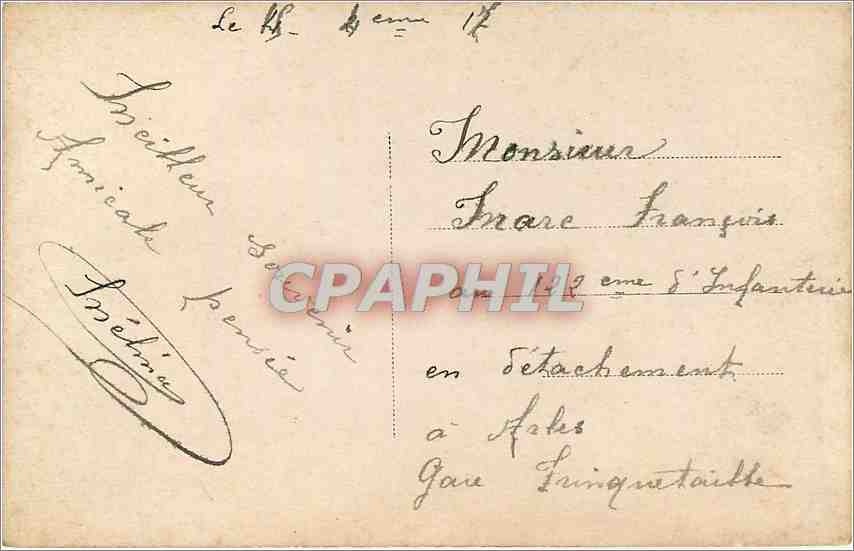 Le 4eme 17
Meilleur souvenir
Amicale pensée
Mélina
Monsieur
Marc François
au 122eme d'Infanterie
en détachement
à Arles
Gare Trinquetaille
CPAPHIL